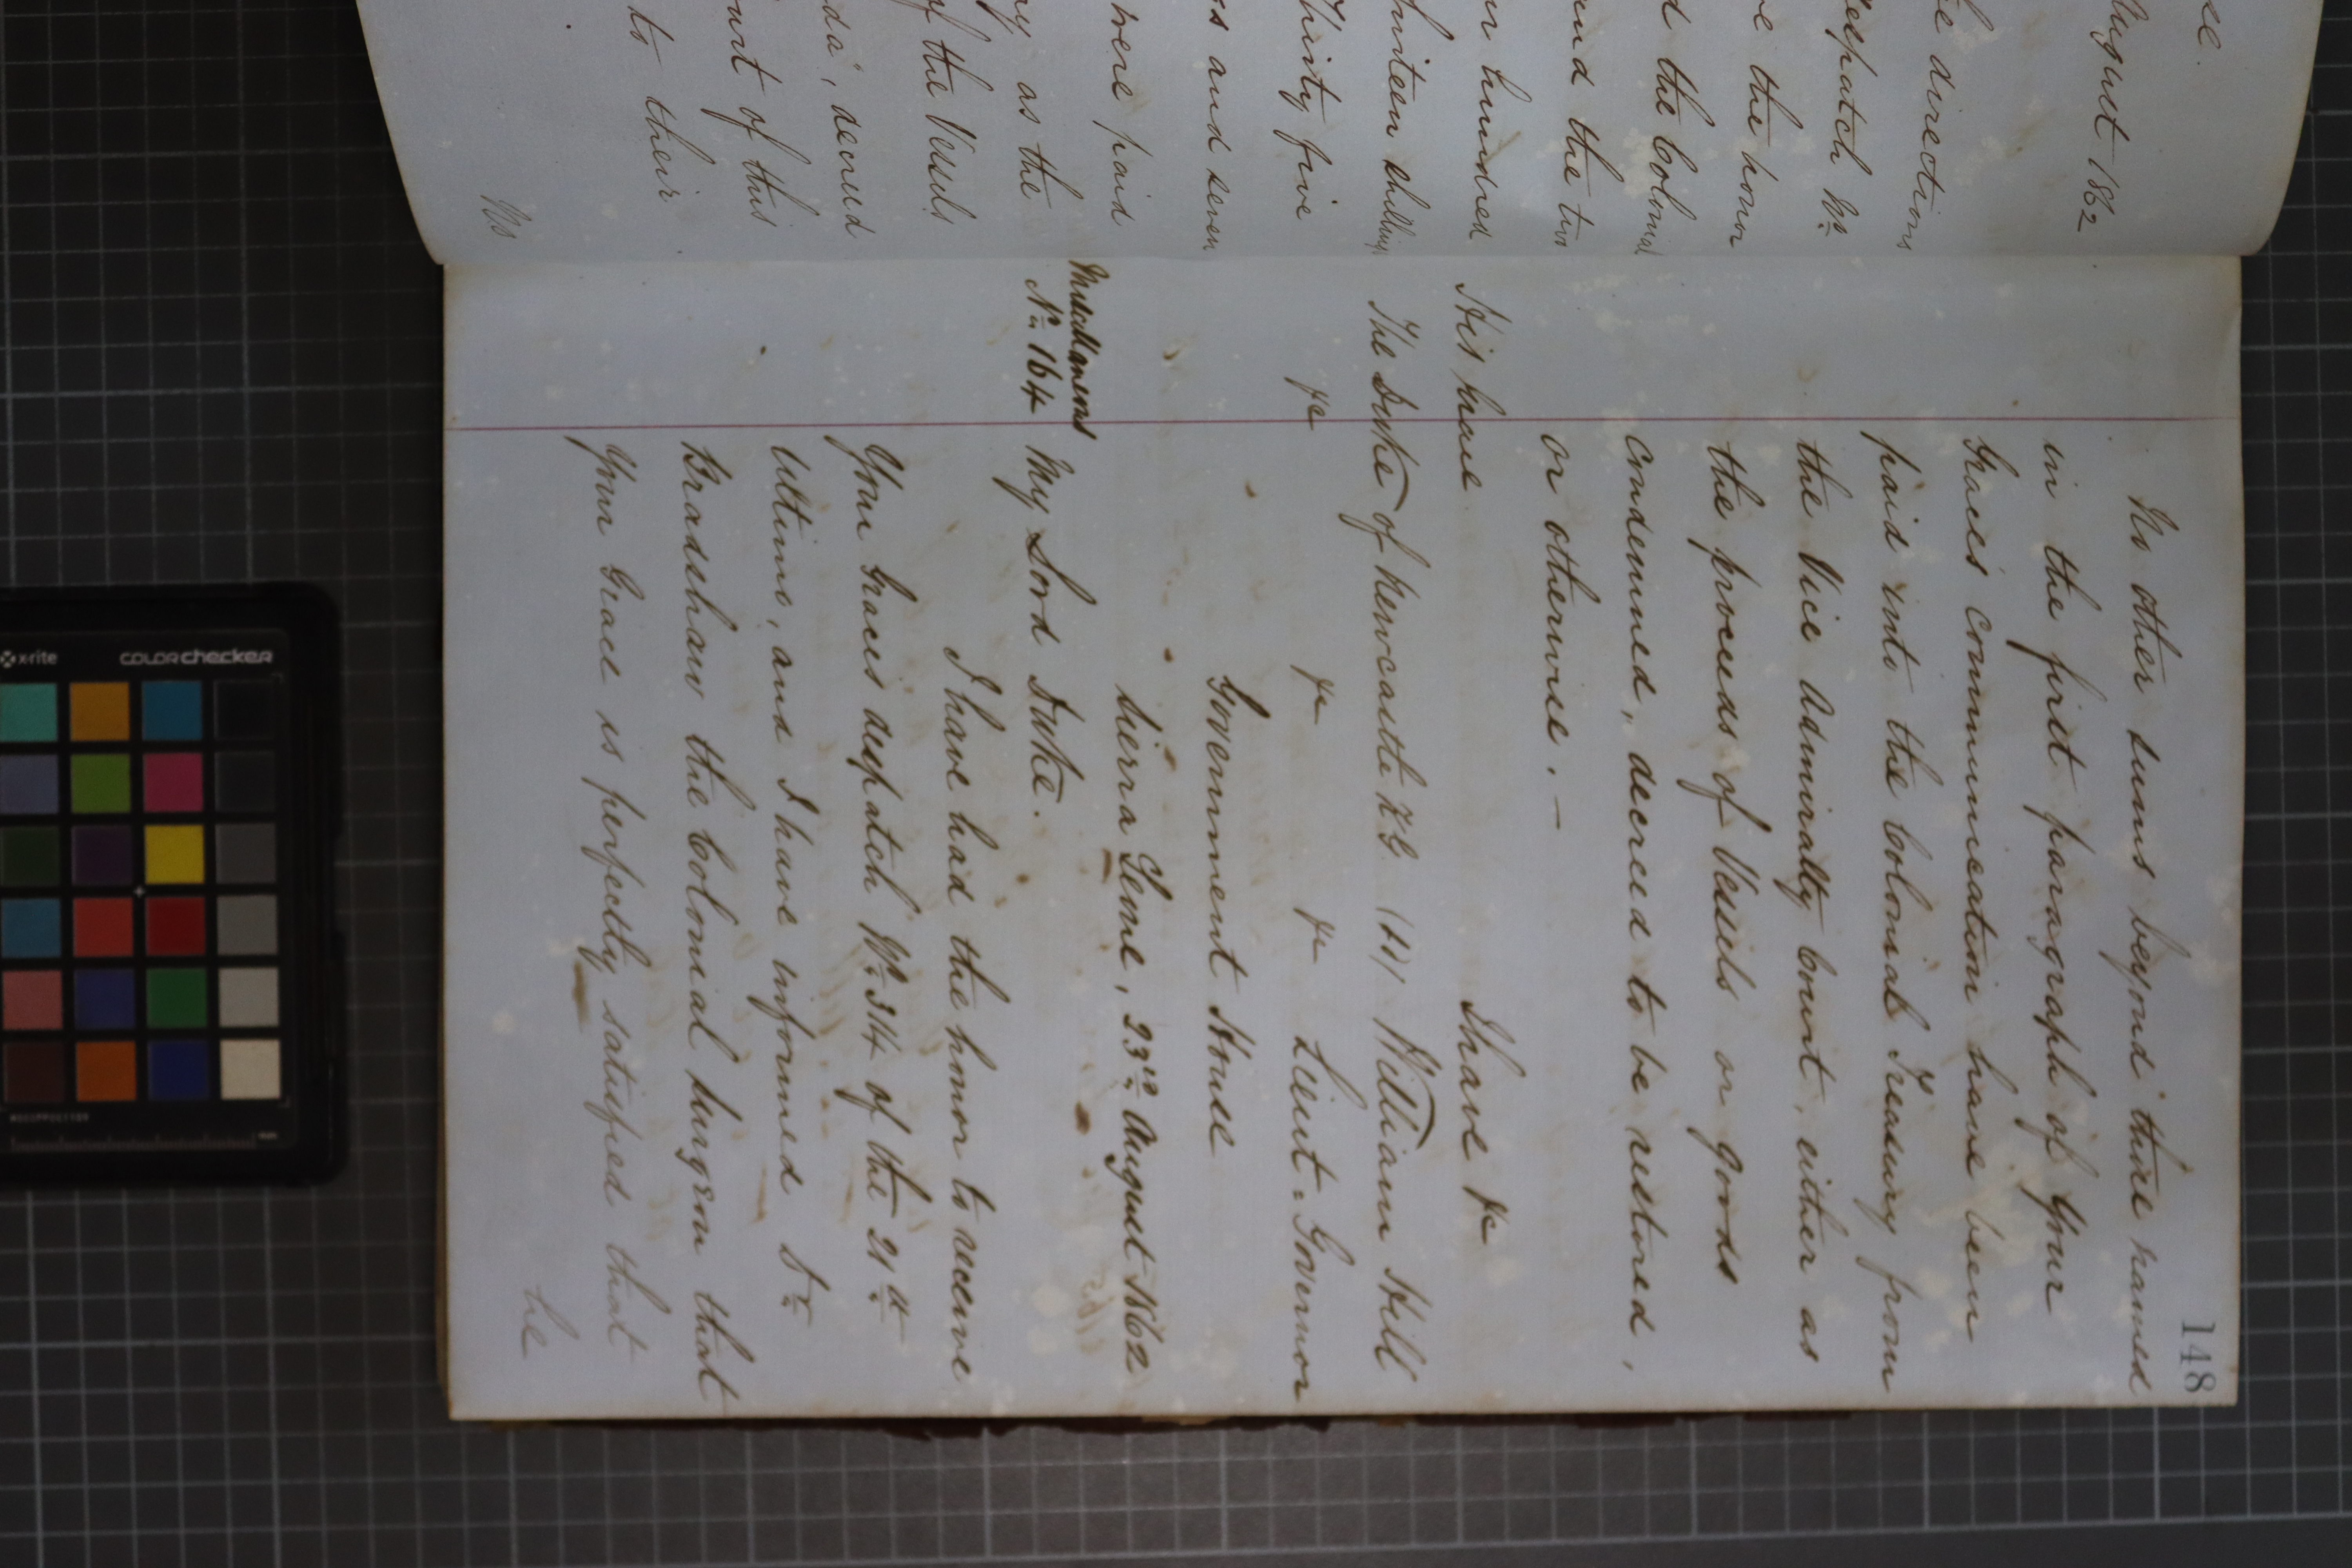 se.
August 1862
e directions
despatch No.
ve the honor
d the Colonial
and the two
ur hundred
thirteen shillings
Thirty five
ss and seven
were paid
ny as the
da", decreed
of the Vessels
ourt of this
to their
No
148
No other sums beyond those named
in the first paragraph of Your
Grace's communication have been
paid into the Colonial Treasury from
the Vice Admiralty Court, either as
the proceeds of Vessels or goods
condemned, decreed to be restored,
or otherwise. —
I have &c
His Grace
The Duke of Newcastle KG (sd) William Hill
&c &c &c Lieut. Governor
Government House
Sierra Leone, 23rd August 1862
Miscellaneous
No. 164 My Lord Duke.
I have had the honor to receive
Your Grace's despatch No. 314 of the 21st
Ultimo, and I have informed Dr.
Bradshaw the Colonial Surgeon that
Your Grace is perfectly satisfied that
he
x-rite
colorchecker